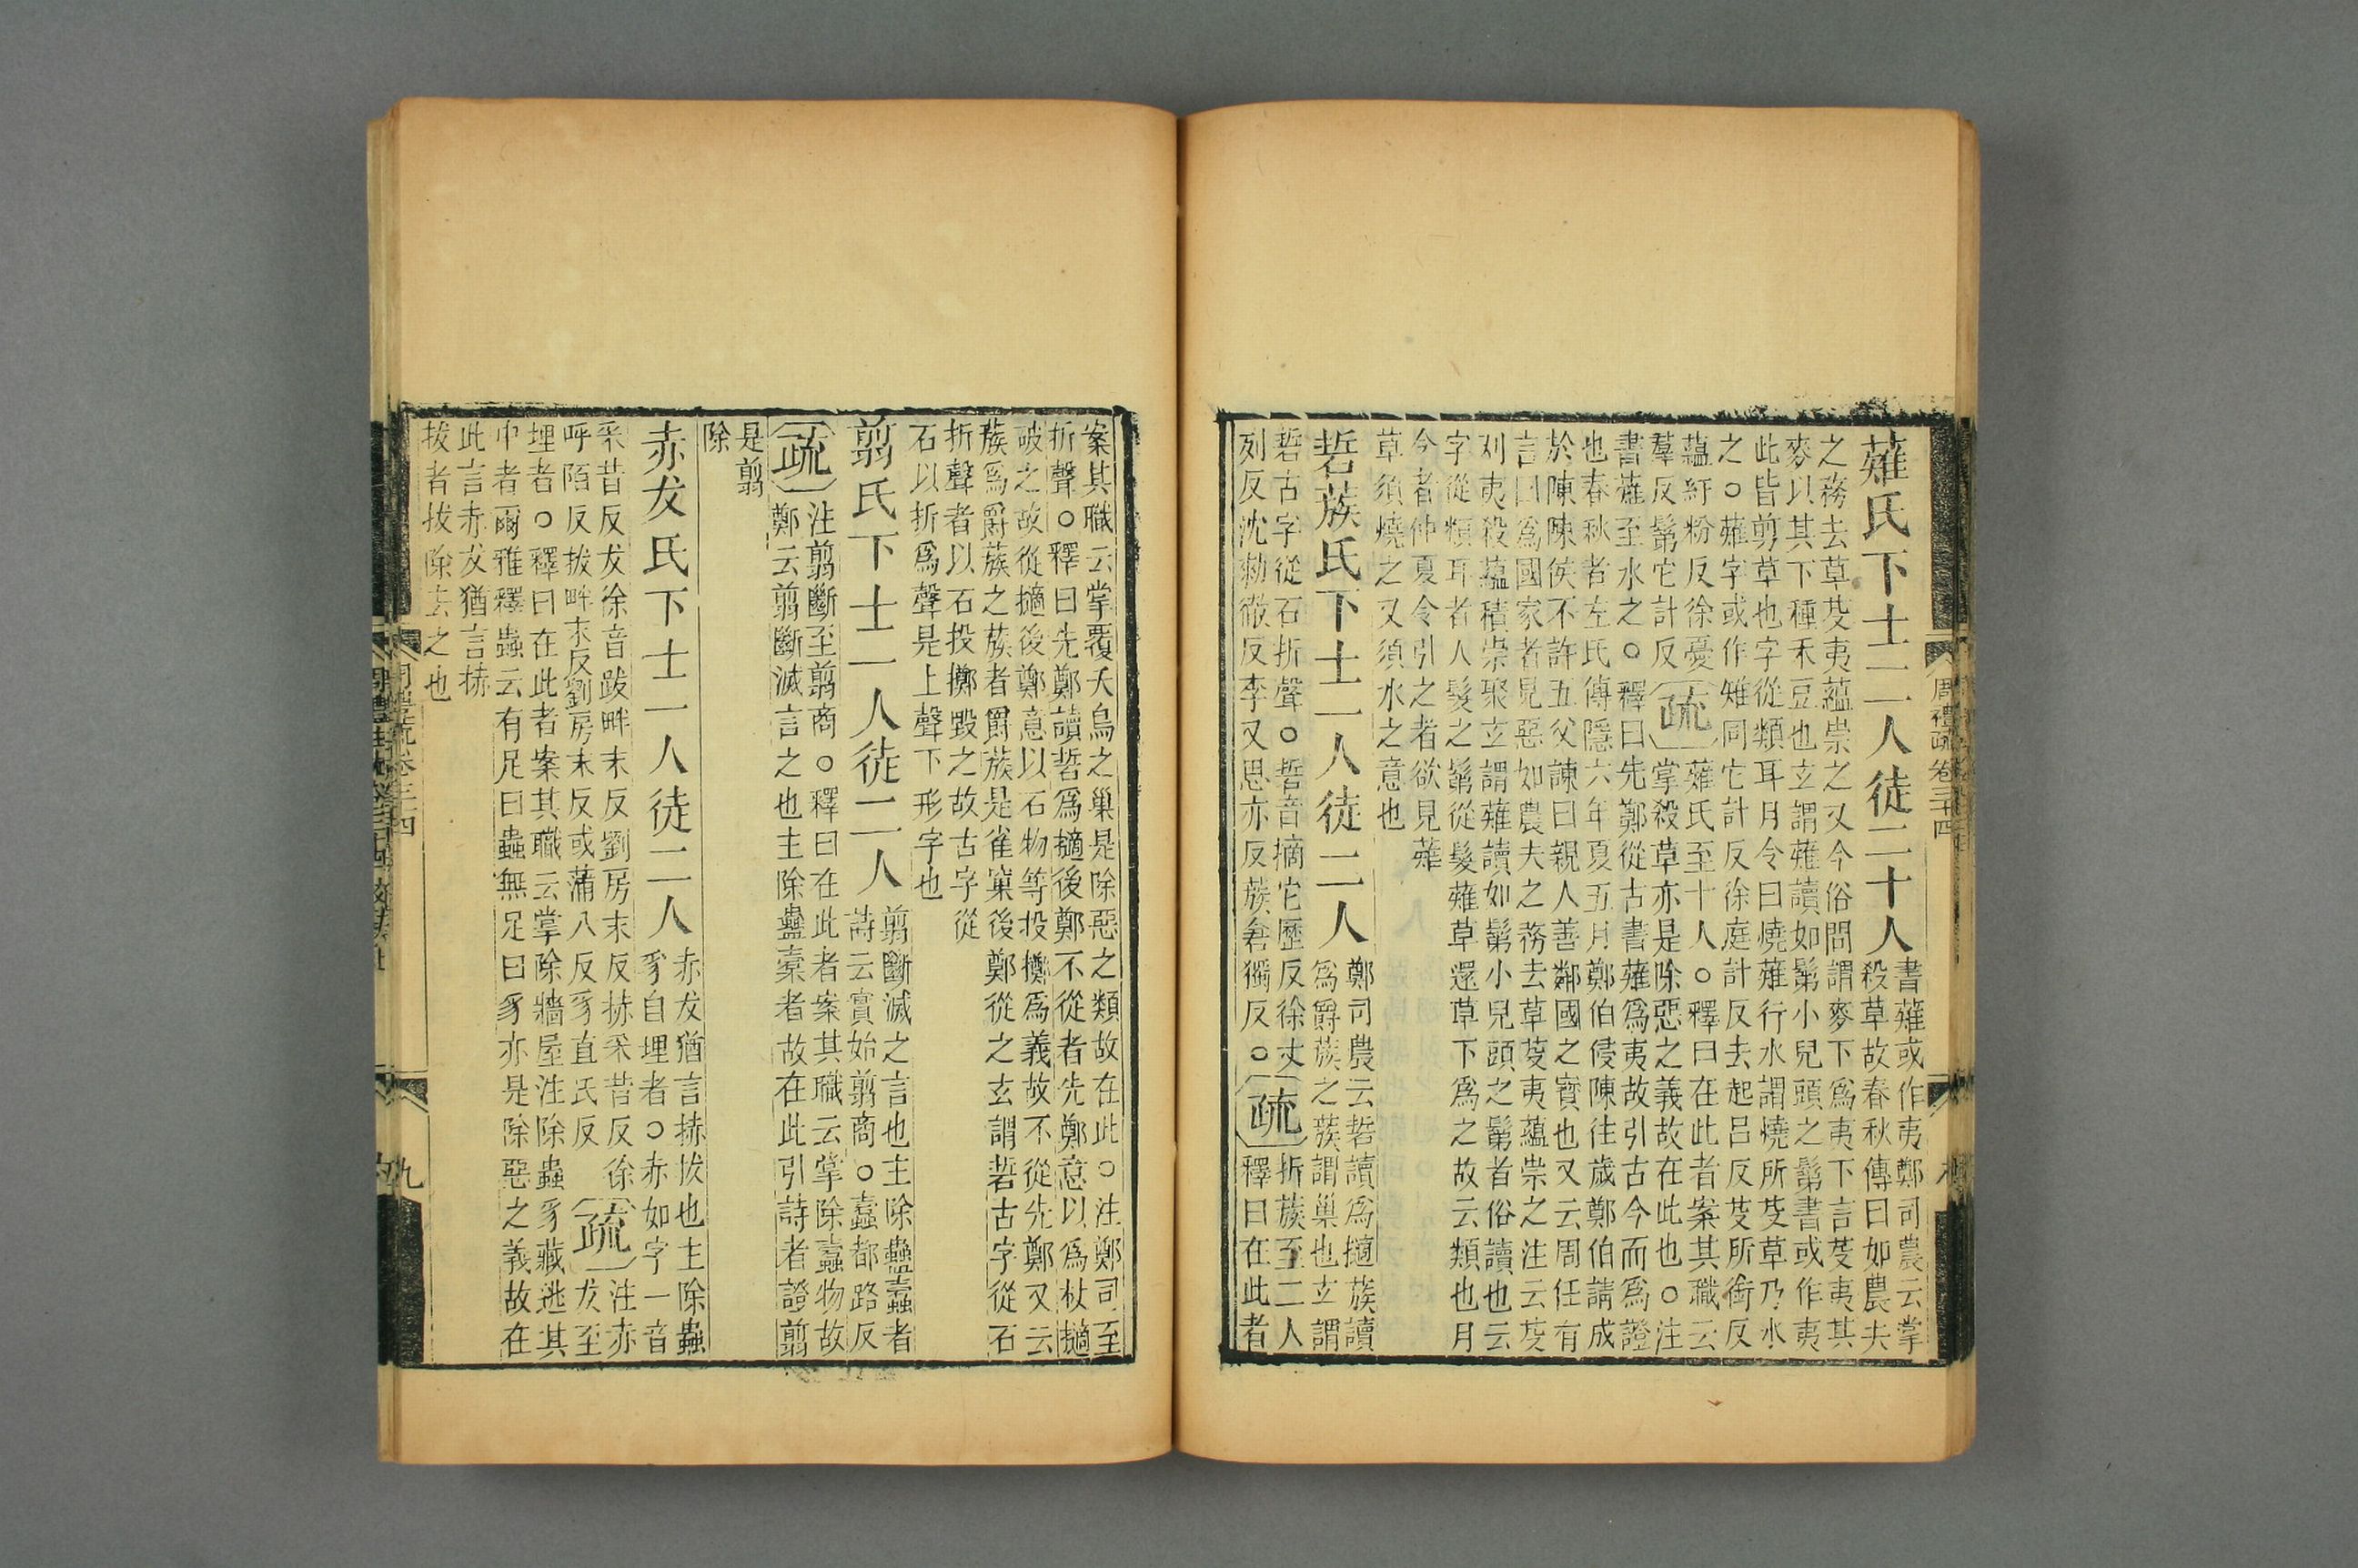 薙氏下士二人徒二十人
書薙或作夷鄭司農云掌
殺草故春秋傳曰如農夫
之務去草芟夷蘊崇之又今俗間謂麥下爲夷下言芟夷其
麥以其下種禾豆也玄謂薙讀如鬀小兒頭之鬀書或作夷
此皆剪草也字從類耳月令曰燒薙行水謂燒所芟草乃水
之○薙字或作雉同它計反徐庭計反去起呂反芟所銜反
蘊紆粉反徐憂
羣反鬀它計反
疏
薙氏至十人○釋曰在此者案其職云
掌殺草亦是除惡之義故在此也○注
書薙至水之○釋曰先鄭從古書薙爲夷故引古今而爲證
也春秋者左氏傳隱六年夏五月鄭伯侵陳往歲鄭伯請成
於陳陳侯不許五父諫曰親人善鄰國之寶也又云周任有
言曰爲國家者見惡如農夫之務去草芟夷蘊崇之注云芟
刈夷殺蘊積崇聚玄謂薙讀如鬀小兒頭之鬀者俗讀也云
字從類耳者人髮之鬀從髮薙草還草下爲之故云類也月
令者仲夏令引之者欲見薙
草須燒之又須水之意也
硩蔟氏下士一人徒二人
鄭司農云硩讀爲擿蔟讀
爲爵蔟之蔟謂巢也玄謂
硩古字從石折聲○硩音摘它歷反徐丈
列反沈勑徹反李又思亦反蔟倉獨反○
疏
折蔟至二人
釋曰在此者
案其職云掌覆夭鳥之巢是除惡之類故在此○注鄭司至
折聲○釋曰先鄭讀硩爲擿後鄭不從者先鄭意以爲杖擿
破之故從擿後鄭意以石物等投擲爲義故不從先鄭又云
蔟爲爵蔟之蔟者爵蔟是雀窠後鄭從之玄謂硩古字從石
折聲者以石投擲毀之故古字從
石以折爲聲是上聲下形字也
翦氏下士一人徒二人
翦斷滅之言也主除蠱蠹者
詩云實始翦商○蠹都路反
疏
注翦斷至翦商○釋曰在此者案其職云掌除蠹物故
鄭云翦斷滅言之也主除蠱橐者故在此引詩者證翦
是翦
除
赤犮氏下士一人徒二人
赤犮猶言捇拔也主除蟲
豸自埋者○赤如字一音
采昔反犮徐音跋畔末反劉房末反捇采昔反徐
呼陌反拔畔末反劉房末反或蒲八反豸直氏反
疏
注赤
犮至
埋者○釋曰在此者案其職云掌除牆屋注除蟲豸藏逃其
中者爾雅釋蟲云有足曰蟲無足曰豸亦是除惡之義故在
此言赤犮猶言捇
拔者拔除去之也
周禮疏卷三十四
九